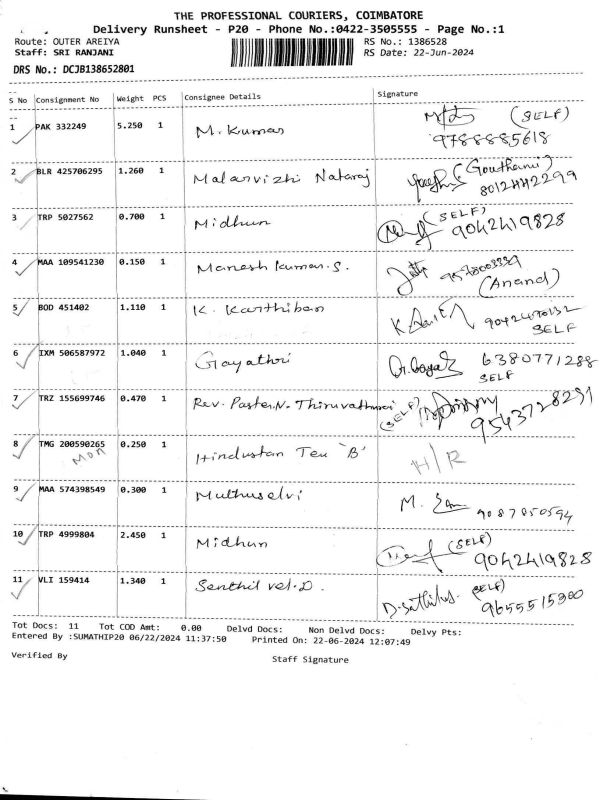 THE PROFESSIONAL COURIERS, COIMBATORE
Delivery Runsheet - P20 - Phone No.:0422-3505555 - Page No.:1
Route: OUTER AREIYA RS No.: 1386528
Staff: SRI RANJANI RS Date: 22-Jun-2024
DRS No.: DCJB138652801
S No Consignment No Weight PCS Consignee Details Signature
1 PAK 332249 5.250 1 M. Kumar (SELF)
9788885618
2 BLR 425706295 1.260 1 Malarvizhi Nataraj (Gouthami)
8012442299
3 TRP 5027562 0.700 1 Midhun (SELF) 9042419828
4 MAA 109541230 0.150 1 Manesh Kumar.S.
(Anand)
5 BOD 451402 1.110 1 K. Karthiban
SELF
6 IXM 506587972 1.040 1 Gayathri 6380771288
SELF
7 TRZ 155699746 0.470 1 Rev. Paster.N. (SELF)
9543728291
8 TMG 200590265 0.250 1 Hindustan Tex 'B' H/R
MON
9 MAA 574398549 0.300 1 Muthuselvi M.
9087850594
10 TRP 4999804 2.450 1 Midhun (SELF)
9042419828
11 VLI 159414 1.340 1 Senthil vel.D. (SELF)
9655515300
Tot Docs: 11 Tot COD Amt: 0.00 Delvd Docs: Non Delvd Docs: Delvy Pts:
Entered By :SUMATHIP20 06/22/2024 11:37:50 Printed On: 22-06-2024 12:07:49
Verified By Staff Signature